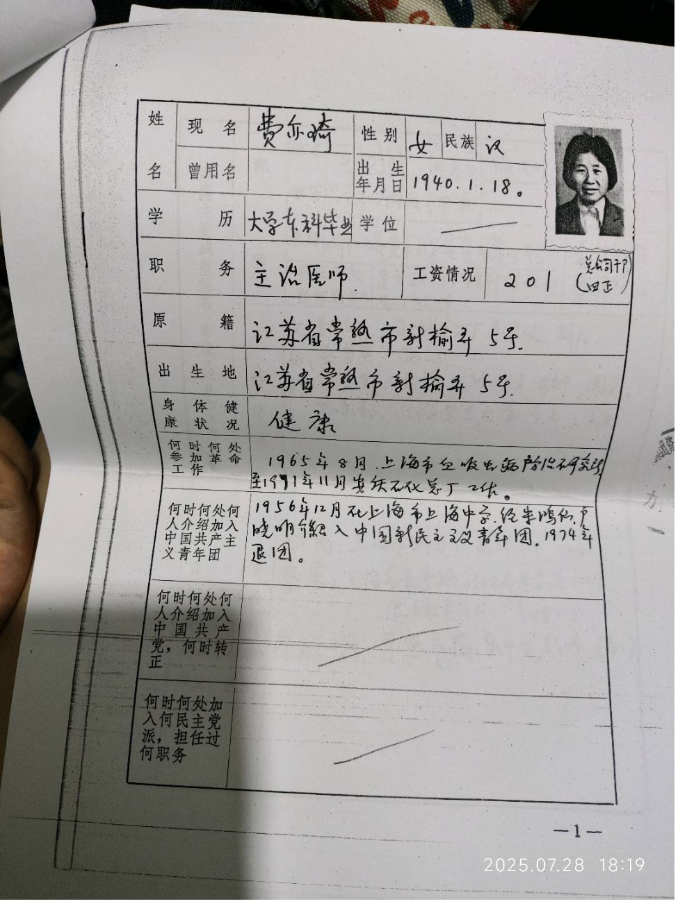 姓名 现名 费亦琦 性别 女 民族 汉
曾用名 出生年月日 1940.1.18。
学历 大学本科毕业 学位
职务 主治医师. 工资情况 201
原籍 江苏省常熟市新榆弄5号.
出生地 江苏省常熟市新榆弄5号.
身体健
康状况 健康
何时何处
参加革命
工作
1965年8月.上海市血吸虫病防治研究所
至1971年11月 石化总厂工作。
何时何处何
人介绍加入
中国共产主
义青年团
1956年12月在上海市上海中学.经
晓明介绍入中国新民主主义青年团.1974年
退团。
何时何处何
人介绍加入
中国共产
党,何时转
正
何时何处加
入何民主党
派,担任过
何职务
—1—
2025.07.28 18:19